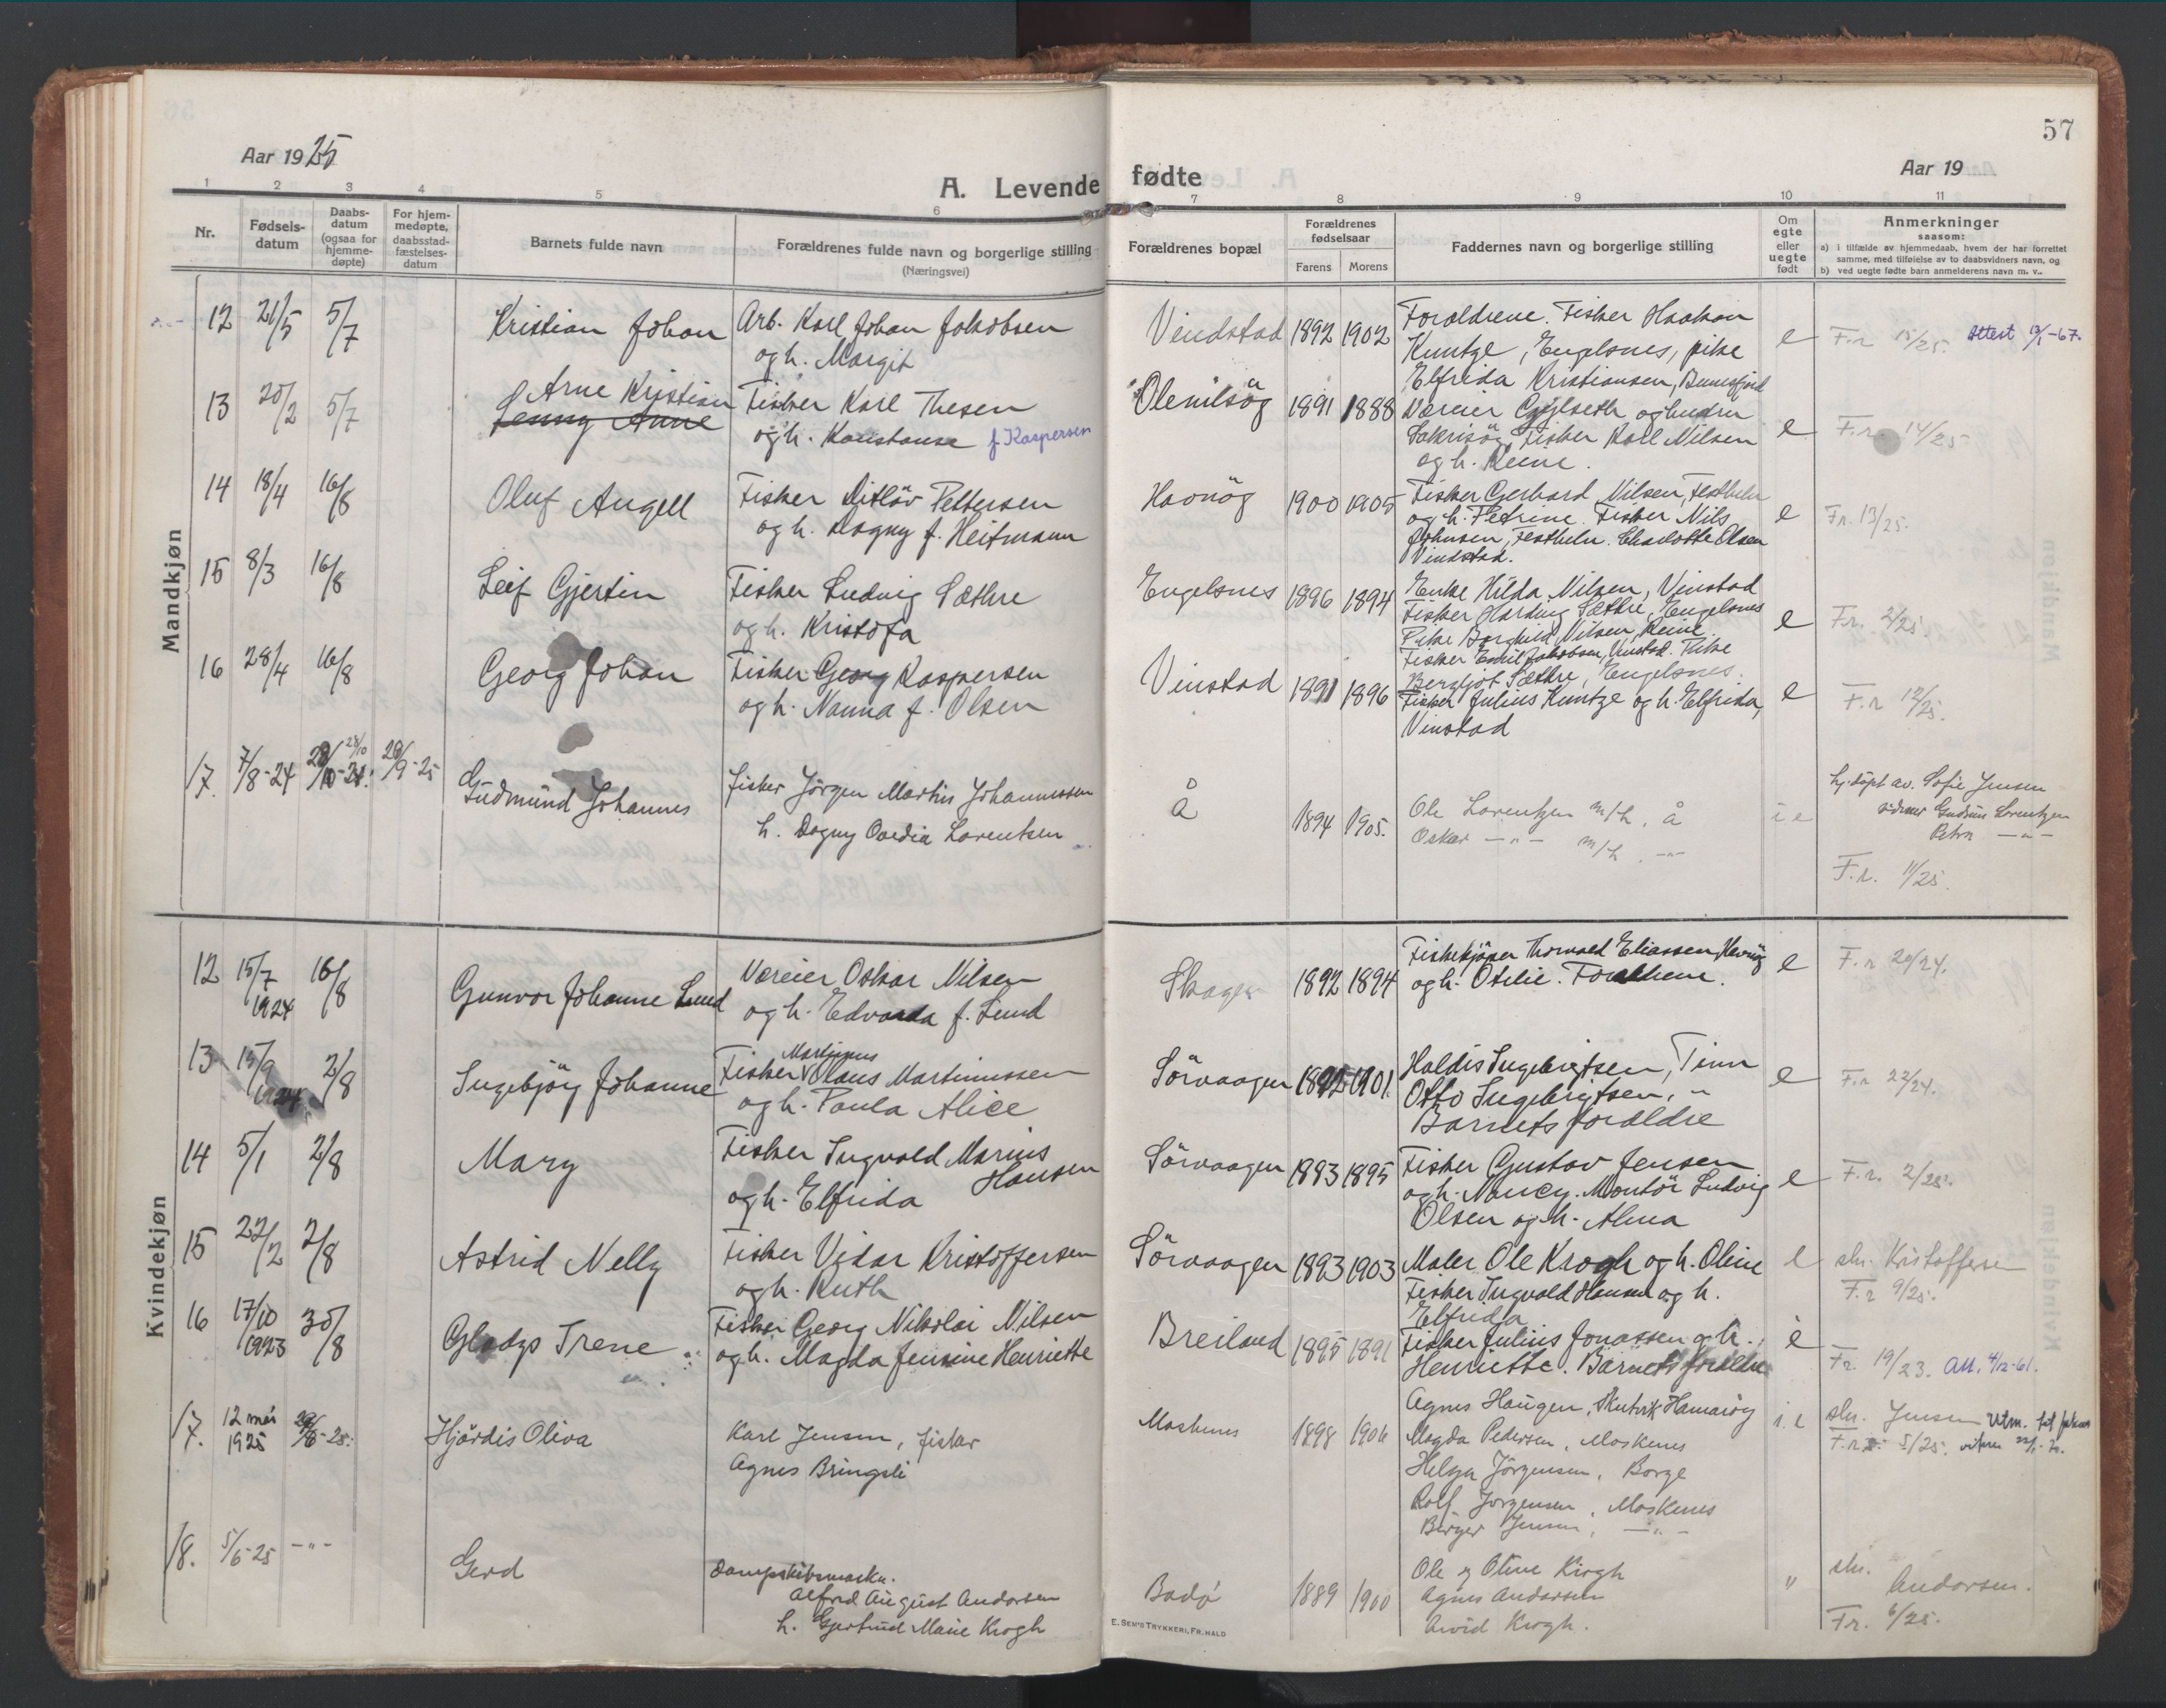 57
Aar 1925
Aar 19
A. Levende fødte
1 2 3 4 5 6 7 8 9 10 11
Nr.
Fødsels-
datum
Daabs-
datum
(ogsaa for
hjemme-
døpte)
For hjem-
medøpte,
daabsstad-
fæstelses-
datum
Barnets fulde navn
Forældrenes fulde navn og borgerlige stilling
(Næringsvei)
Forældrenes bopæl
Forældrenes
fødselsaar
Farens Morens
Faddernes navn og borgerlige stilling
Om
egte
eller
uegte
født
Anmerkninger
saasom:
a) i tilfælde av hjemmedaab, hvem der har forrettet
samme, med tilføielse av to daabsvidners navn, og
b) ved uegte fødte barn anmelderens navn m. v..
Mandkjøn
12 21/5 5/7 Kristian Johan
Arb. Karl Johan Jakobsen
og h. Margit
Vindstad 1892 1902
Foraldrene. Fisker Haakon
Kuntze, Engelsnes, pike
Elfrida Kristiansen, Bunesfjord
e F.r 15/25. Attest 13/1-67.
13 20/2 5/7 Arne Kristian
Jenny Anne
Fisker Karl Thesen
og h. Konstanse f. Kaspersen
Olenilsöy 1891 1888
Væreier Gylseth og hustru
Sakrisöy, Fisker Karl Nilsen
og h. Reine.
e F.r. 14/25
14 18/4 16/8 Oluf Angell
Fisker Ditlöv Pettersen
og h. Dagny f. Heitmann
Havnöy 1900 1905
Fisker Gerhard Nilsen, Festheln
og h. Petrine. Fisker Nils
Johnsen, Festheln. Charlotte Olsen
Vindstad.
e Fr. 13/25.
15 8/3 16/8 Leif Gjertin
Fisker Ludvig Sæthre
og h. Kristofa
Engelsnes 1896 1894
Enke Hilda Nilsen, Vinstad
Fisker Harding Sæthre, Engelsnes
Pike Borghild Nilsen, Reine
e Fr. 2/25.
16 28/4 16/8 Georg Johan
Fisker Georg Kaspersen
og h. Nanna f. Olsen
Vinstad 1891 1896
Fisker Emil Jakobsen, Vinstad. Pike
Bergljot Sæthre, Engelsnes.
Fisker Julius Kuntze og h. Elfrida,
Vinstad
e F.r 12/25.
17. 7/8-24 28/10-24. 28/10 20/9-25
Gudmund Johannes
fisker Jörgen Martin Johannessen
h. Dagny Ovedia Lorentsen
Å 1894 1905.
Ole Lorentzen m/h, å
Oskar -"- m/h. -"-
i e
hj.döpt av. Sofie Jensen
vidner Gudrun Lorentzen
Petra -"-
F.r. 11/25.
Kvindekjøn
12 15/7 1924 16/8 Gunvor Johanne Lund
Væreier Oskar Nilsen
og h. Edvarda f. Lund
Skagen 1892 1894
Fiskekjöper Thorvald Eliassen, Havnöy
og h. Otilie. Foraldrene.
e F.r 20/24.
13 15/9 1924 2/8 Ingebjörg Johanne
Martinus
Fisker Olaus Martinussen
og h. Paula Alice
Sörvaagen 1892 1901.
Haldis Ingebrigtsen, Tinn
Otto Ingebrigtsen, "
Barnets foraldre
e F.r 22/24.
14 5/1 2/8 Mary
Fisker Ingvald Marius
Hansen
og h. Elfrida
Sörvaagen 1883 1895
Fisker Gustav Jensen
og h. Nancy. Montör Ludvig
Olsen og h. Alma
e F.r. 2/25.
15 22/2 2/8 Astrid Nelly
Fisker Vidar Kristoffersen
og h. Ruth
Sörvaagen 1893 1903
Maler Ole Krogh og h. Oline
Fisker Ingvald Hansen og h.
Elfrida
e skr. Kristoffersen
F.r 9/25.
16 17/10 1923 30/8 Gladys Irene
Fisker Georg Nikolai Nilsen
og h. Magda Jensine Henriette
Breiland 1895 1891
Fisker Julius Jonassen og h.
Henriette. Barnets foraldre
e
Fr. 19/23. Att. 4/12-61.
17. 12 mai 1925
Hjördis Oliva
Karl Jensen, fisker
Agnes Bringsli
Moskenes 1898 1906
Agnes Haugen, Skutvik Hamaröy
Magda Pedersen, Moskenes
Helga Jörgensen, Borge
Rolf Jorgensen, Moskenes
Birger Jensen, -"-
i e
skr. Jensen
F.r. 5/25.
18. 5/6-25 -"- Gerd
Dampskibsmaskn.
Alfred August Andorsen
h. Gjertrud Marie Krogh
Bodø 1889 1900
Ole og Oline Krogh
Agnes Andorsen
Arvid Krogh.
"
skr.
Andorsen.
Fr. 6/25.
E. SEM'S TRYKKERI, FR.HALD